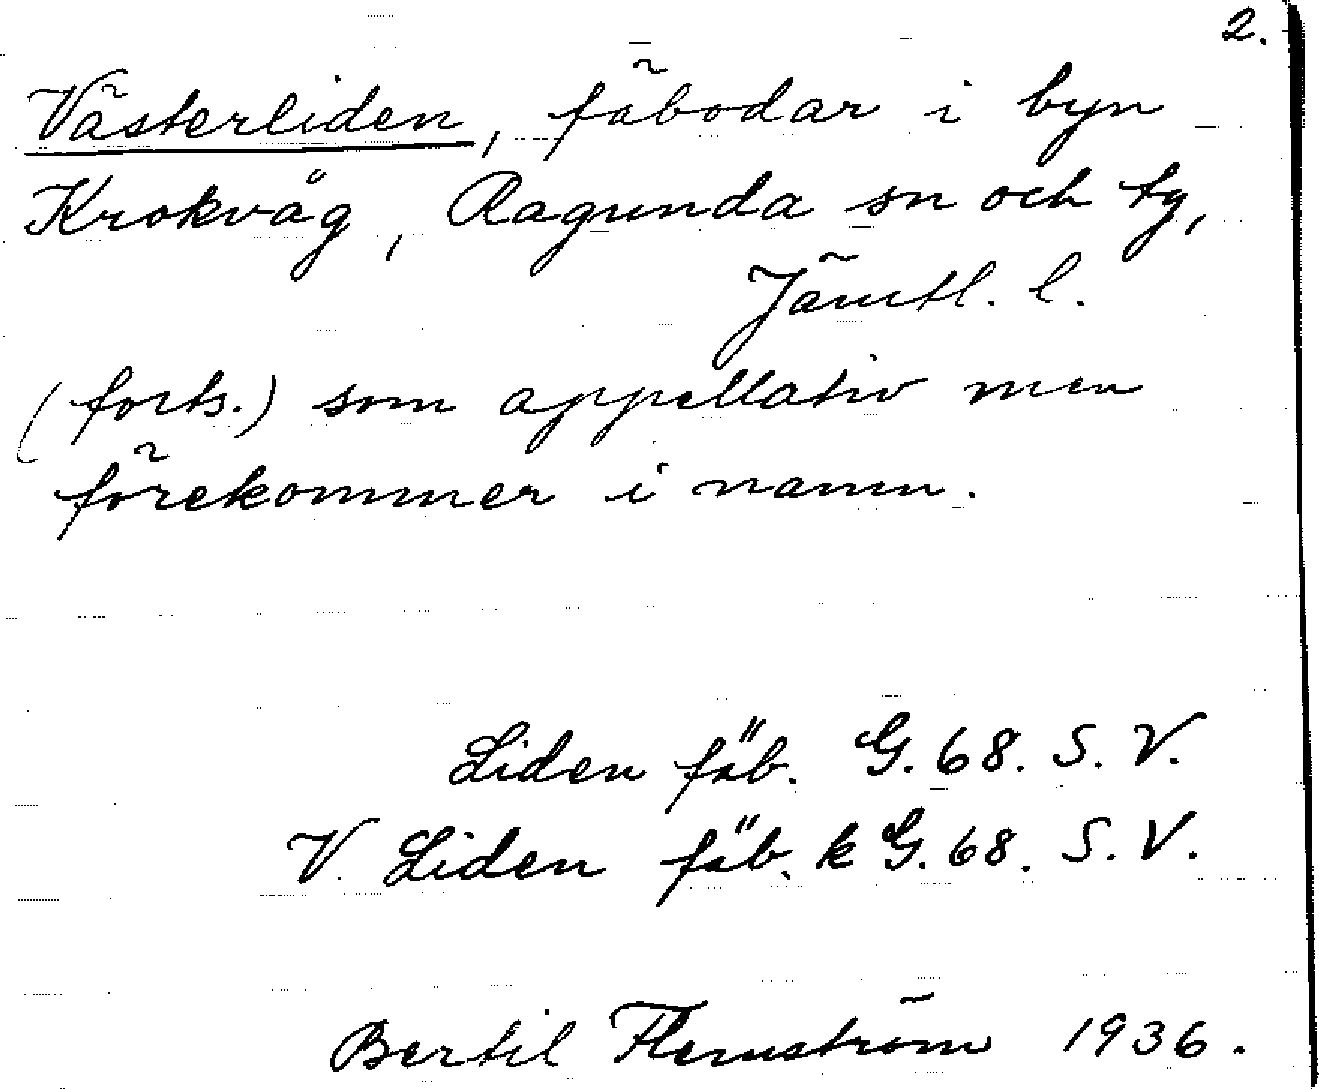 2.
Västerliden, fäbodar i byn
Krokvåg, Ragunda sn och tg,
Jämtl. l.
(forts.) som appellativ men
förekommer i namn.
Liden fäb. G. 68. S. V.
V. Liden fäb. k G. 68. S. V.
Bertil Flemström 1936.